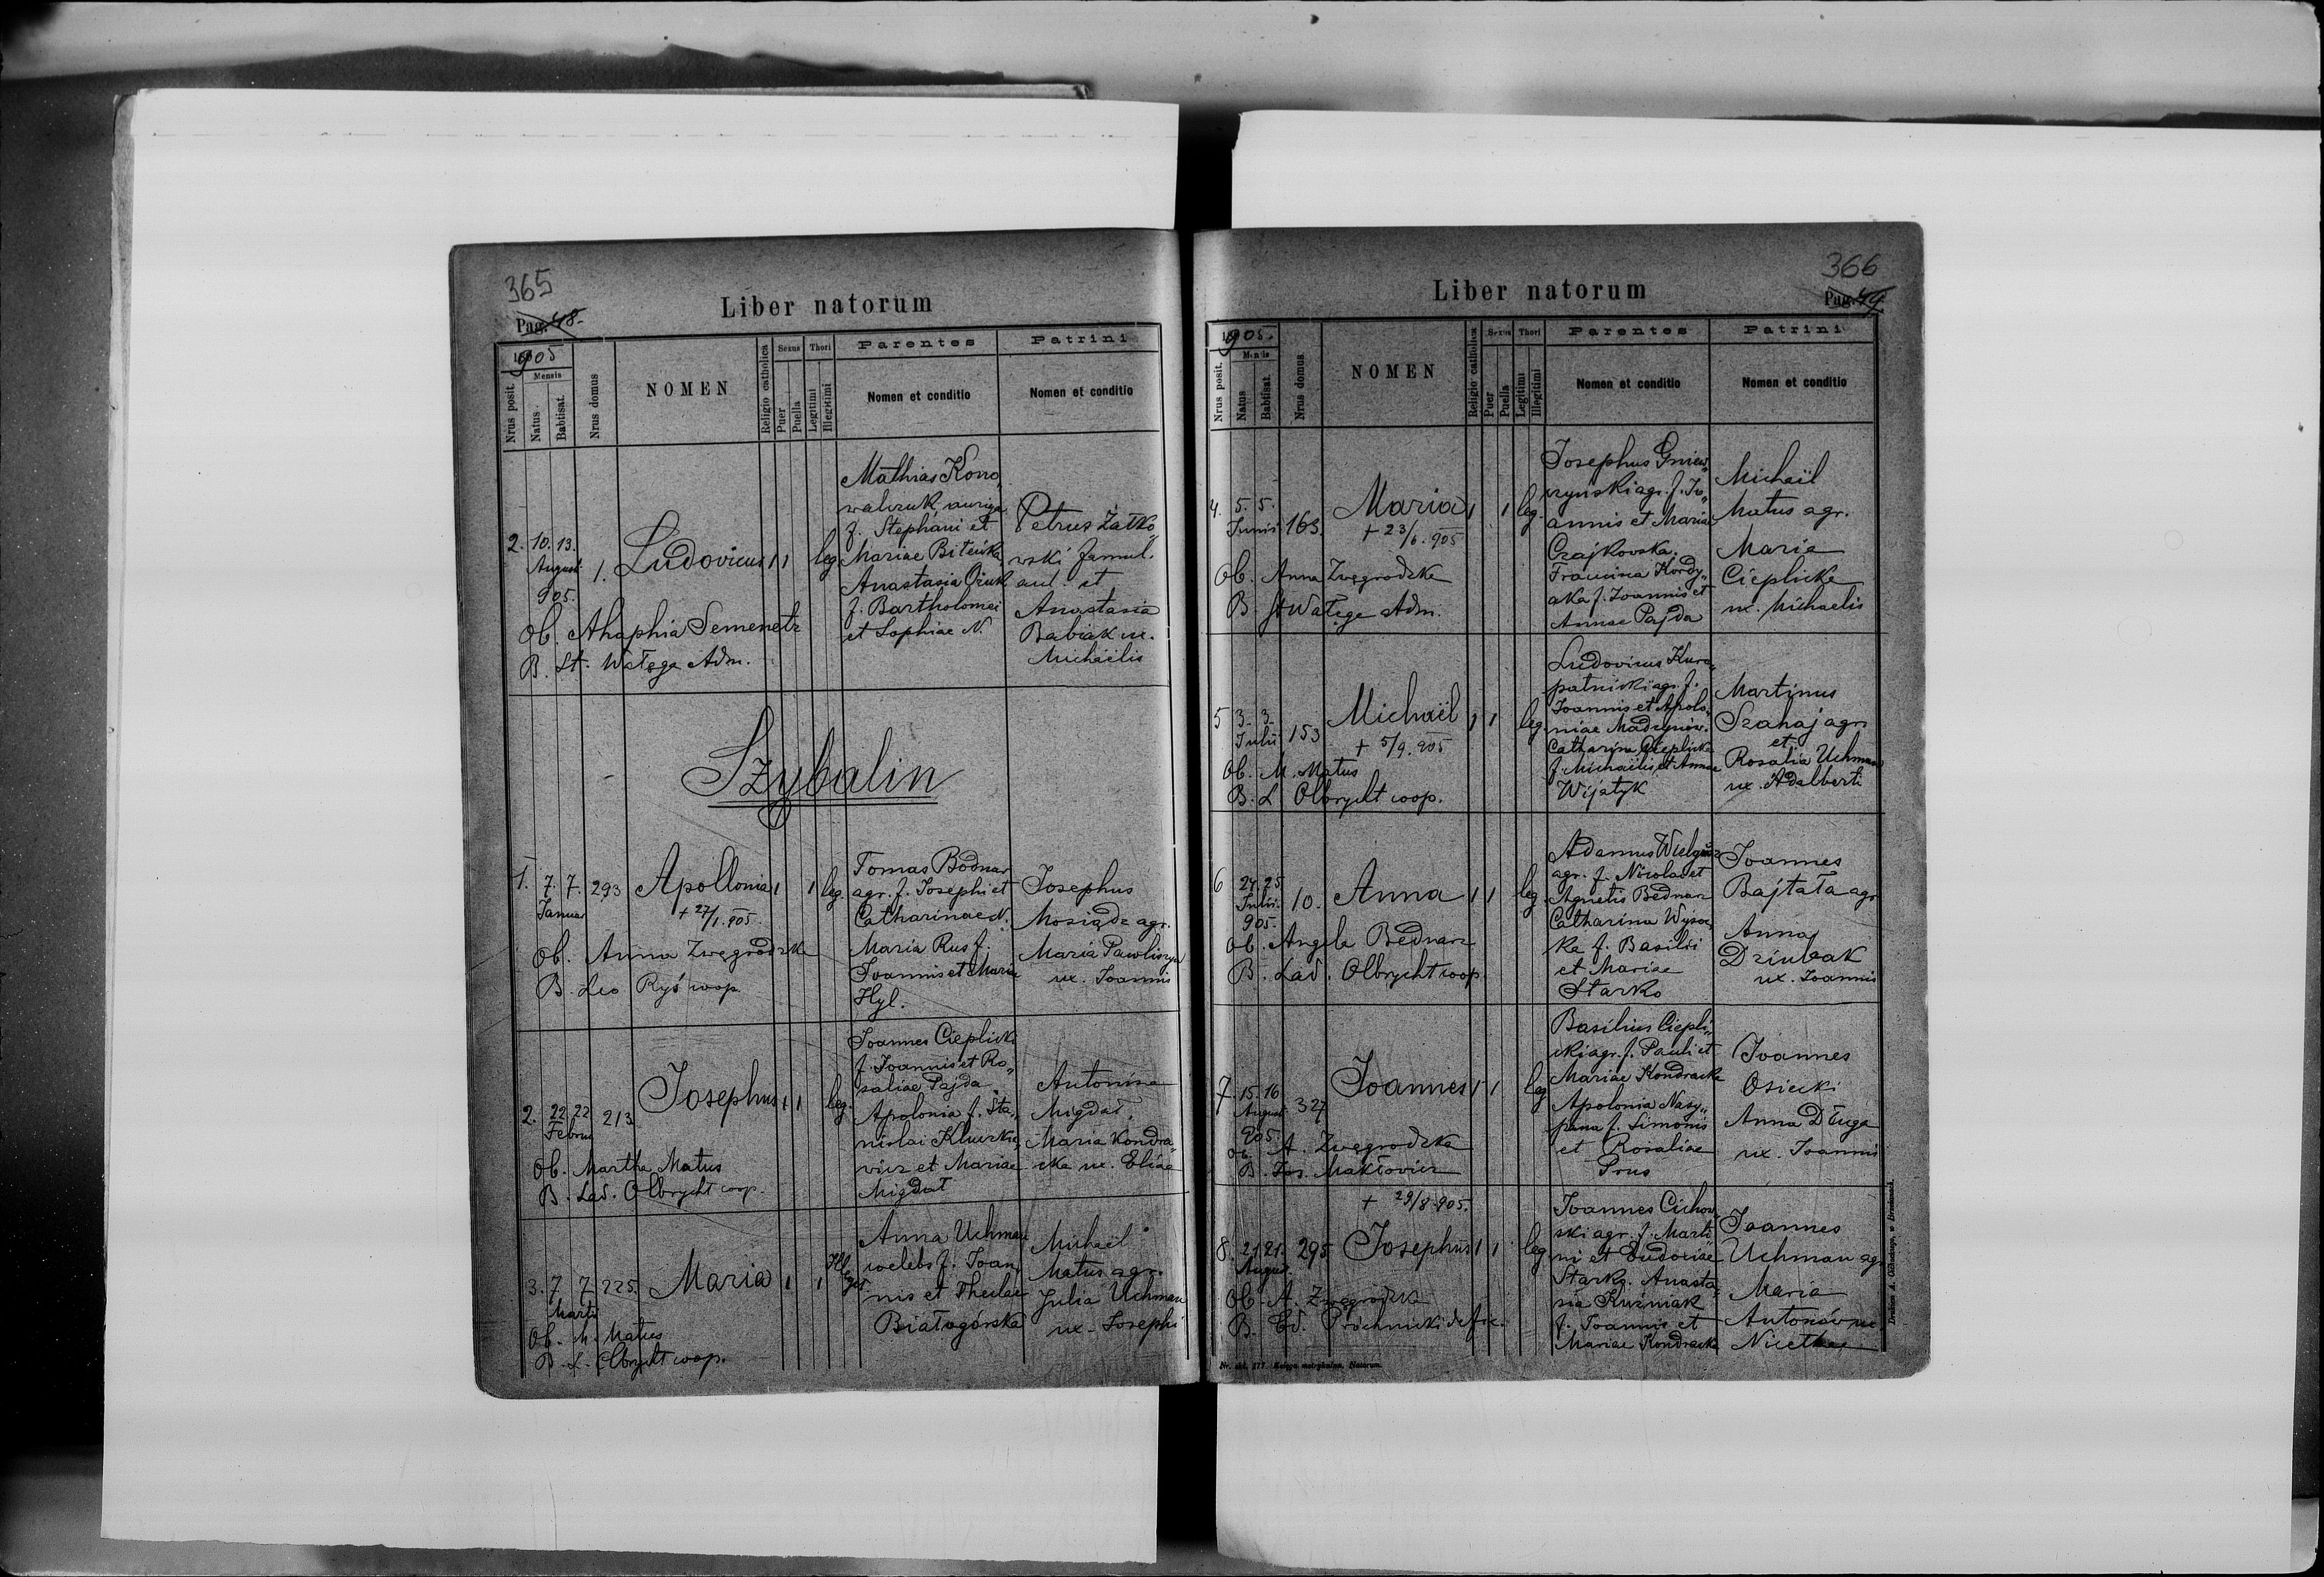 365
Pag. 48.
Liber natorum
1905
Mensis
Nrus posit.
Natus
Babtisat.
Nrus domus
NOMEN
Religio catholica
Sexus
Puer
Puella
Thori
Legitimi
Illegitimi
Parentes
Nomen et conditio
Patrini
Nomen et conditio
2. 10. 13.
August
905.
1.
Ludovicus 1 1 leg.
Mathias Kono„
walczuk, auriga
f. Stephani et
Mariae
Anastasia
f. Bartholomei
et Sophiae N.
Petrus Zatko„
wski famul.
aul. et
Anastasia
Babiak ux.
Michaëlis
Ob. Ahaphia Semenetz
B. St. Wałęga Adm.
Szybalin
1. 7. 7. 293
Januar
Apollonia 1 1 leg.
+ 27/1. 905.
Tomas Bodnar
agr. f. Josephi et
Catharinae N.
Maria Rus f.
Joannis et Mariae
Hyl.
Josephus
Mosiądz agr.
Maria Pawliszyn
ux. Joannis
Ob. Anna Zwegrodzka
B. Leo Ryś coop.
2. 22 22 213
Februar
Josephus 1 1 leg.
Joannes Cieplicki
f. Joannis et Ro„
saliae Pajda.
Apolonia f. Sta„
nislai
et Mariae
Migdał
Antonina
Migdał,
Maria Kondra„
cka ux. Eliae
Ob. Martha Matus
B. Lad. Olbrycht coop.
3. 7 7 225.
Martii
Maria 1 1 Illegit
Anna Uchman
coelebs f. Joan„
nis et Theclae
Białogórska
Michaël
Matus agr.
Julia Uchman
ux. Josephi
Ob. M. Matus
B. L. Olbrycht coop.
366
Pag. 49.
Liber natorum
1905.
Mensis
Nrus posit.
Natus
Babtisat.
Nrus domus
NOMEN
Religio catholica
Sexus
Puer
Puella
Thori
Legitimi
Illegitimi
Parentes
Nomen et conditio
Patrini
Nomen et conditio
4. 5. 5.
Junii 163.
Maria 1 1 leg.
+ 23/6. 905
Josephus Gniew„
czyński agr. f. Jo„
annis et Maria
Czajkowska.
Francisca Kordy„
aka f. Joannis et
Annae Pajda
Michaël
Matus agr.
Maria
Cieplicka
ux. Michaelis
Ob. Anna Zwegrodzka
B. St Wałęga Adm.
5 3. 3.
Julii 153
Michaël 1 1 leg.
+ 5/9. 905
Ludovicus Kuro„
patnicki agr. f.
Joannis et Apolo„
niae
Catharina Cieplicka
f. Michaëlis et Annae
Wijatyk
Martinus
Szahaj agr.
et
Rosalia Uchman
ux. Adalberti
Ob. M. Matus
B. L Olbrycht coop.
6 24. 25.
Julii.
905.
10. Anna 1 1 leg.
Adamus
agr. f. Nicolai et
Agnetis Bednarz
Catharina Wysoc„
ka f. Basilii
et Mariae
Starko
Joannes
Bajtała agr
Anna
Dziubak
ux. Joannis
Ob. Angela Bednarz
B. Lad. Olbrycht coop.
7. 15. 16
August
905.
327
Joannes 1 1 leg
Basilius Ciepli„
cki agr. f. Pauli et
Mariae Kondracka
Apolonia Nasy„
pana f. Simonis
et Rosaliae
Prus
Joannes
Osiecki
Anna Długa
ux. Joannis
Ob. A. Zwegrodzka
B. Jos. Makłowicz
+ 29/8. 905.
8. 21 21. 295
August.
Josephus 1 1 leg
Joannes Cichow„
ski agr. f. Marti„
ni et Eudoxiae
Starko. Anasta„
sia Kuźniak
f. Joannis et
Mariae Kondracka
Joannes
Uchman agr
Maria
Antonów ux
Nicetae
Ob. A. Zwegrodzka
B. Ed. Próchnicki
Nr. skł. 277. Księga metrykalna. Natorum.